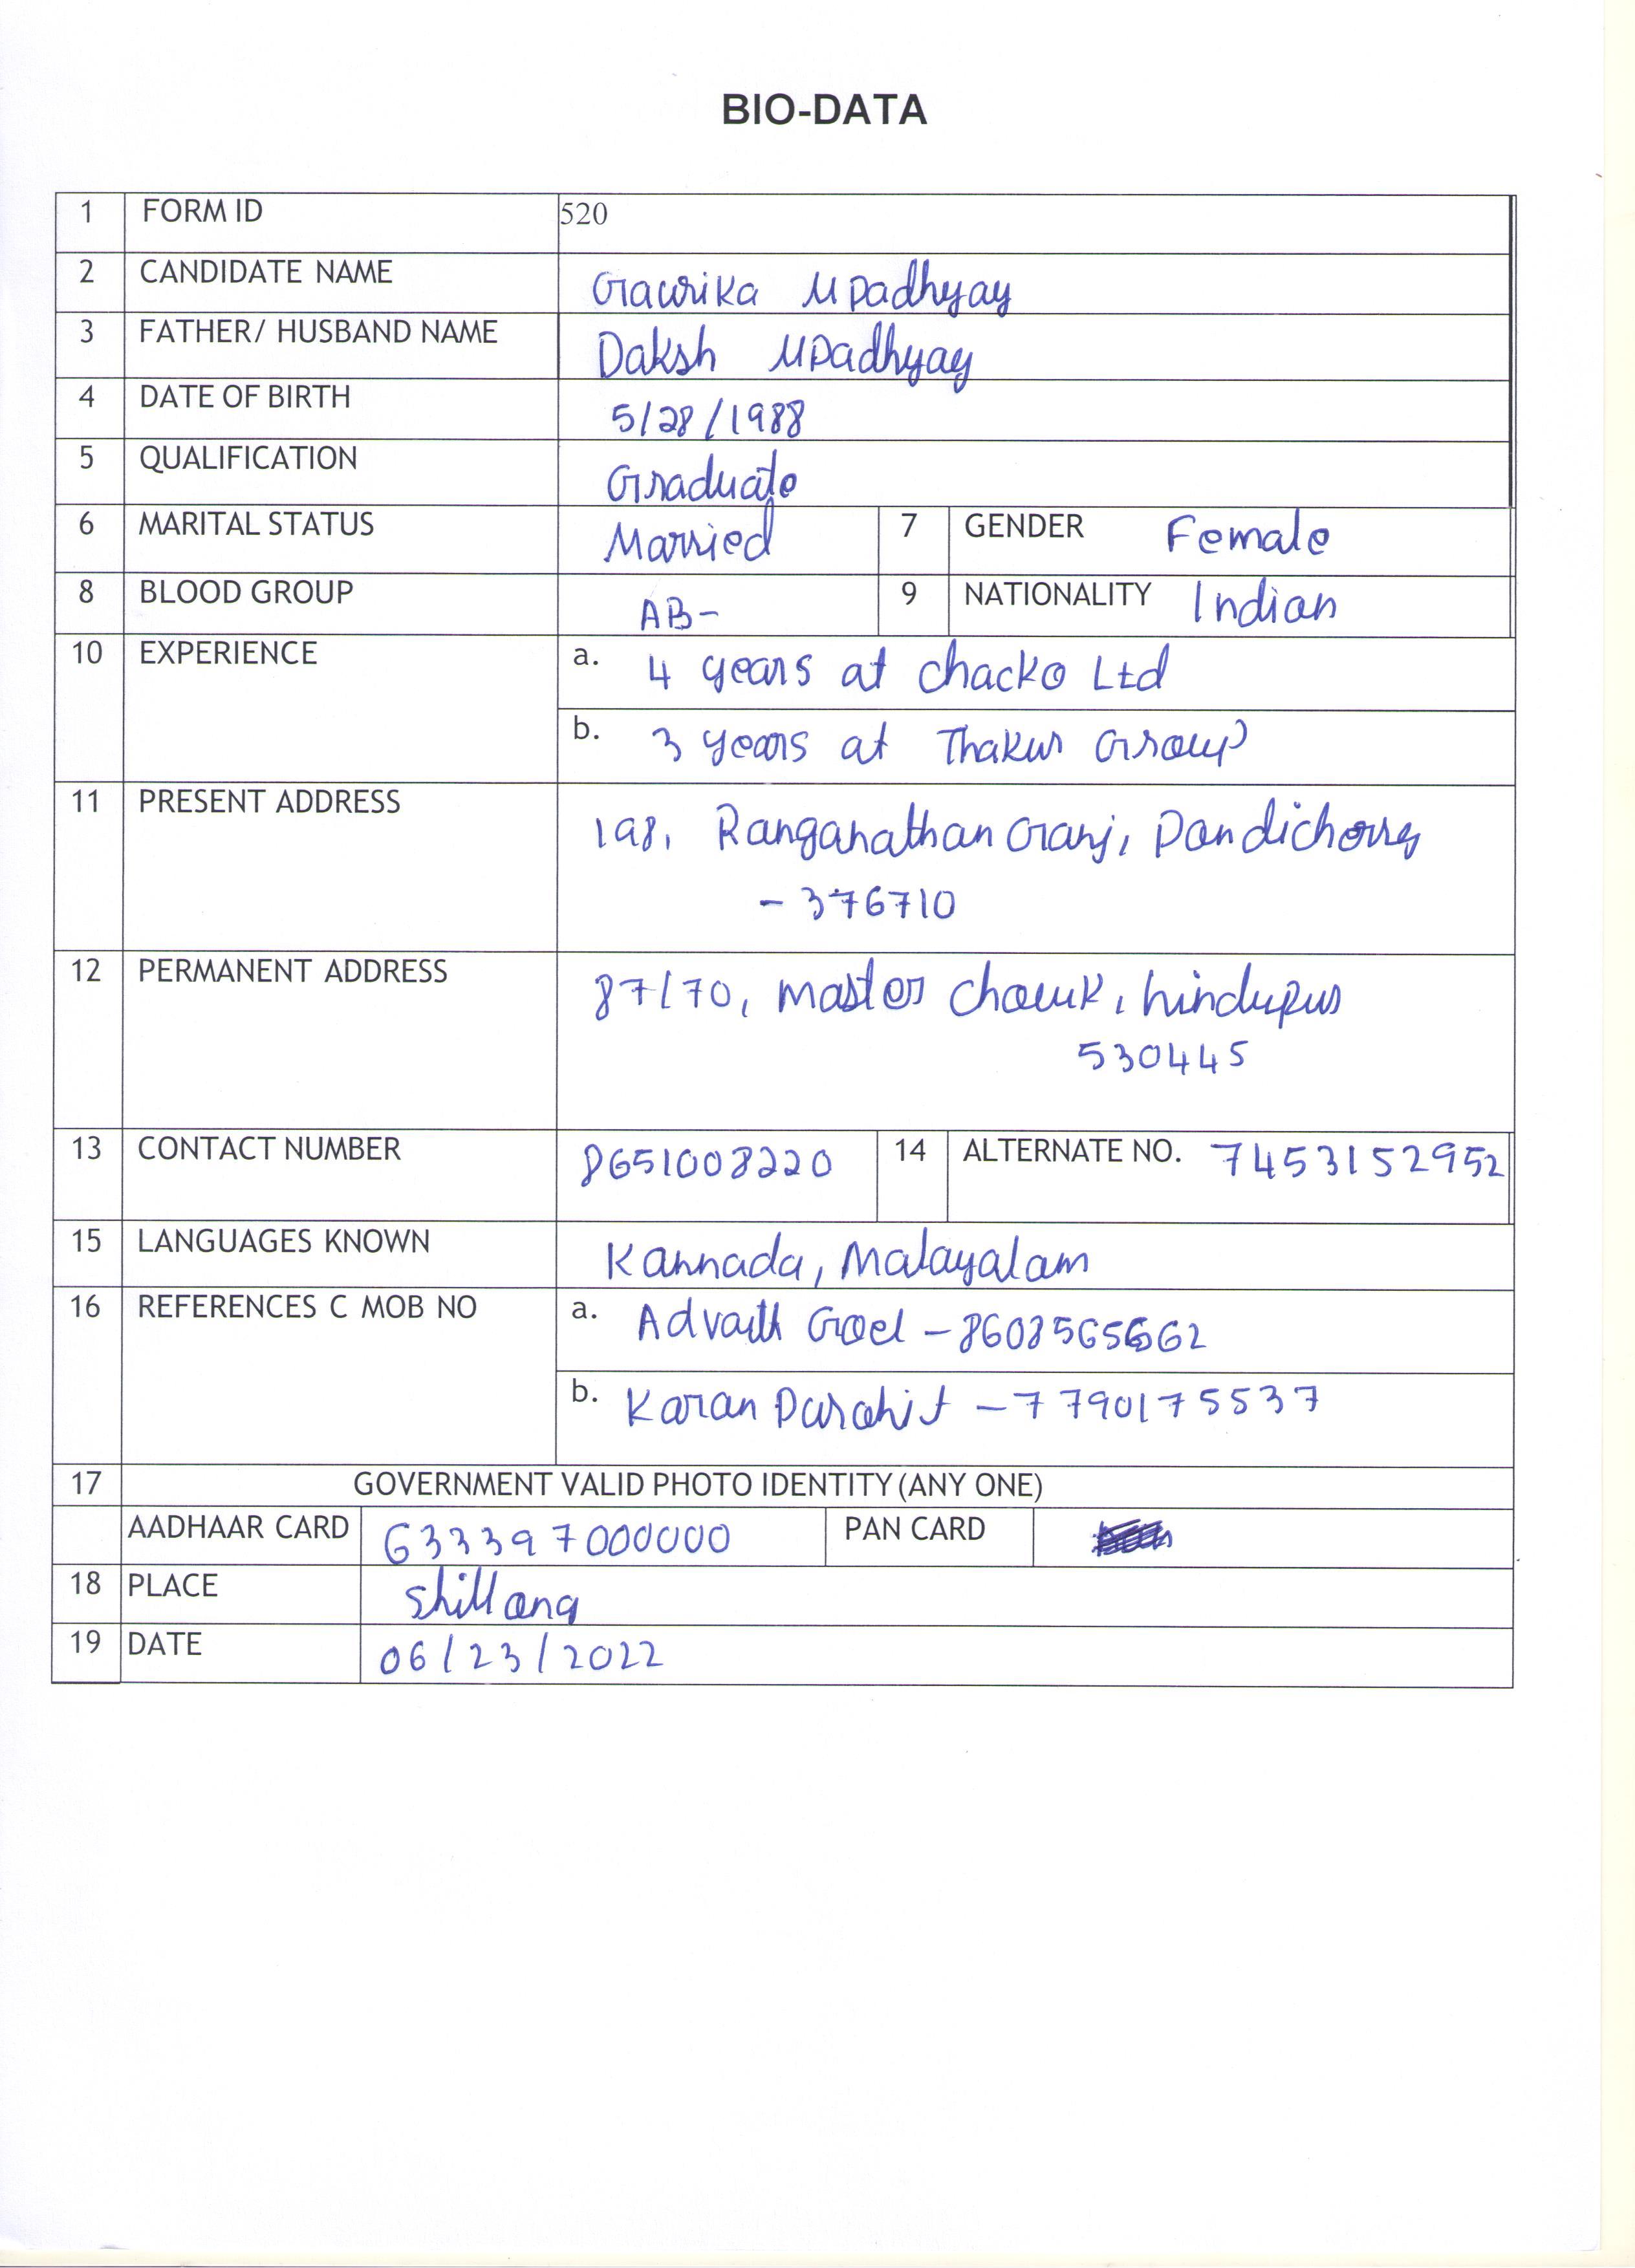 BIO-DATA
1 FORM ID 520
2 CANDIDATE NAME Gaurika Upadhyay
3 FATHER/ HUSBAND NAME Daksh Upadhyay
4 DATE OF BIRTH 5/28/1988
5 QUALIFICATION Graduate
6 MARITAL STATUS Married 7 GENDER Female
8 BLOOD GROUP AB- 9 NATIONALITY Indian
10 EXPERIENCE a. 4 years at Chacko Ltd
b. 3 years at Thakur Group
11 PRESENT ADDRESS 198, Ranganathan Ganj, Pondicherry
- 376710
12 PERMANENT ADDRESS 87/70, Master Chowk, hindupur
530445
13 CONTACT NUMBER 8651008220 14 ALTERNATE NO. 7453152952
15 LANGUAGES KNOWN Kannada, Malayalam
16 REFERENCES C MOB NO a. Advaith Goel - 8608565662
b. Karan Purohit - 7790175537
17 GOVERNMENT VALID PHOTO IDENTITY (ANY ONE)
AADHAAR CARD 633397000000 PAN CARD
18 PLACE Shillong
19 DATE 06/23/2022